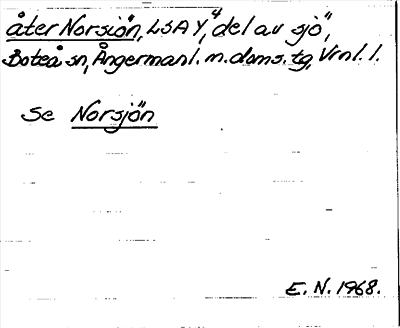 åter Norsjön, LSAY, "del av sjö",
Boteå sn, Ångermanl. m. doms. tg, Vrnl. l.
se Norsjön
E. N. 1968.